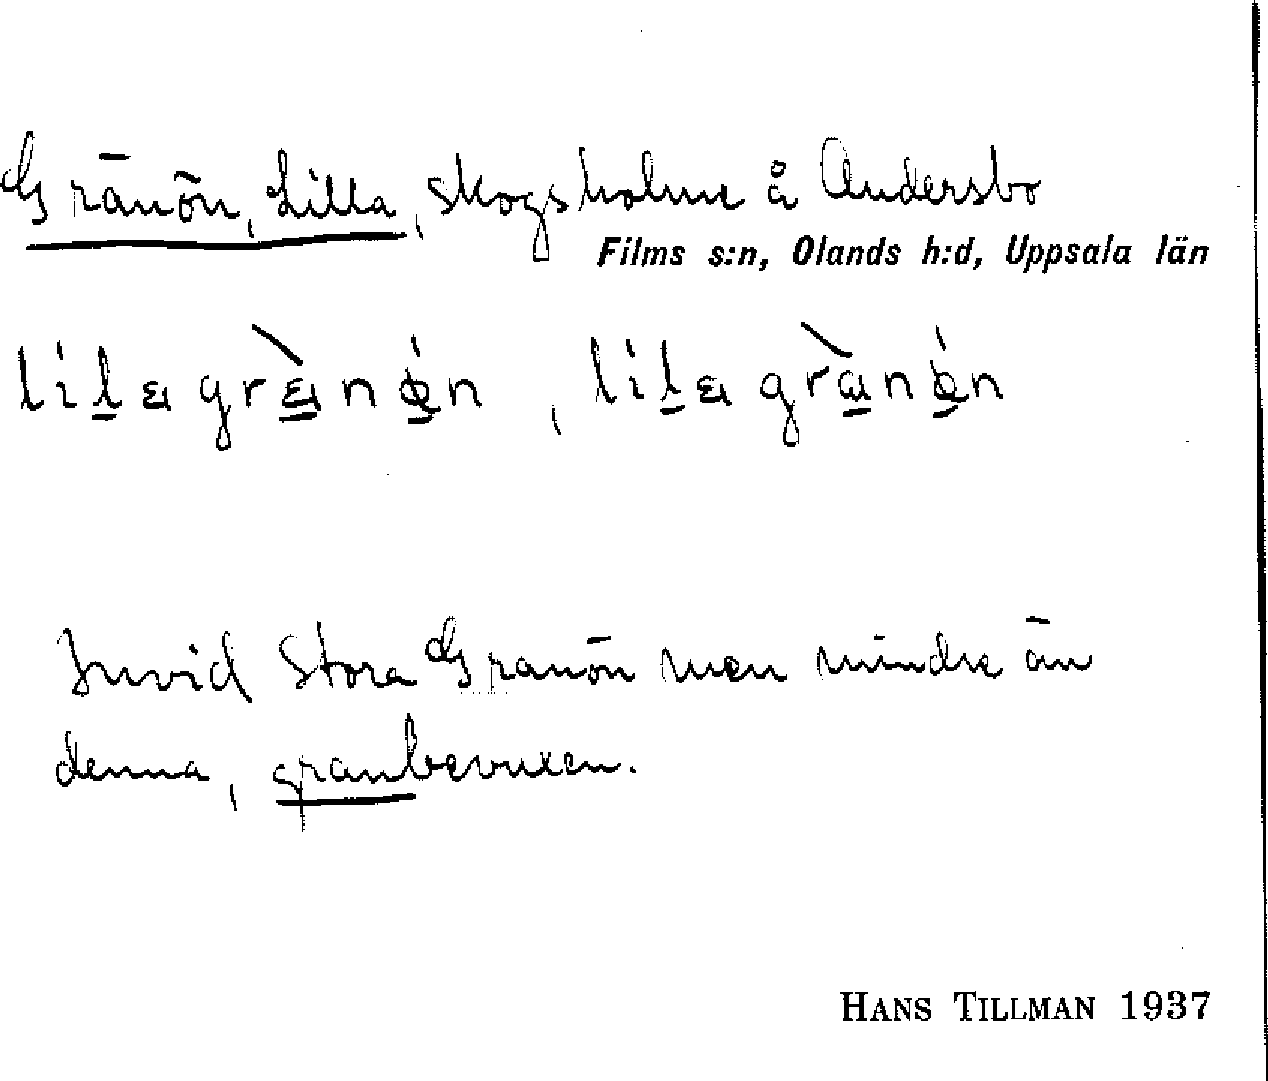 Gränön, Lilla, skogsholme å Andersbo
Films s:n, Olands h:d, Uppsala län
Invid Stora Granön men mindre än
denna, granbevuxen.
HANS TILLMAN 1937